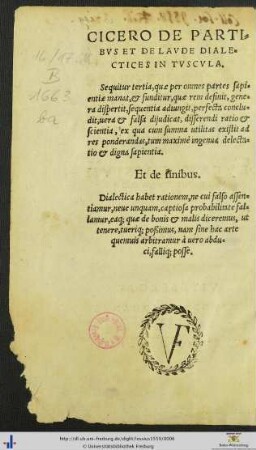 CICERO DE PARTI-
BVS ET DE LAVDE DIALE-
CTICES IN TVSCVLA.
Sequitur tertia, quæ per omnes partes sapi-
entiæ manat, & funditur, quæ rem definit, gene-
ra dispertit, sequentia adiungit, perfecta conclu-
dit, uera & falsa dijudicat, disserendi ratio &
scientia, ex qua cum summa utilitas existit ad
res ponderandas, tum maximè ingenua delecta-
tio & digna sapientia.
Et de finibus.
Dialectica habet rationem, ne cui falso assen-
tiamur, neue unquam, captiosa probabilitate fal-
lamur, eaq; quæ de bonis & malis diceremus, ut
tenere, tueriq; possimus, nam sine hac arte
quemuis arbitramur à uero abdu-
ci, falliq; posse.
16/17.
B
1663
VF